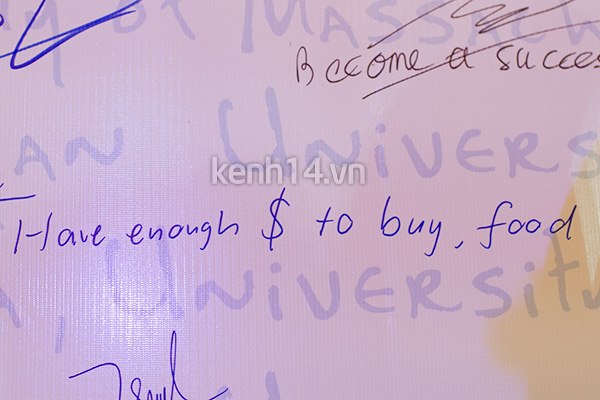 y of Massach
Become a succes
an Univers
kenh14.vn
Have enough $ to buy, food
, University